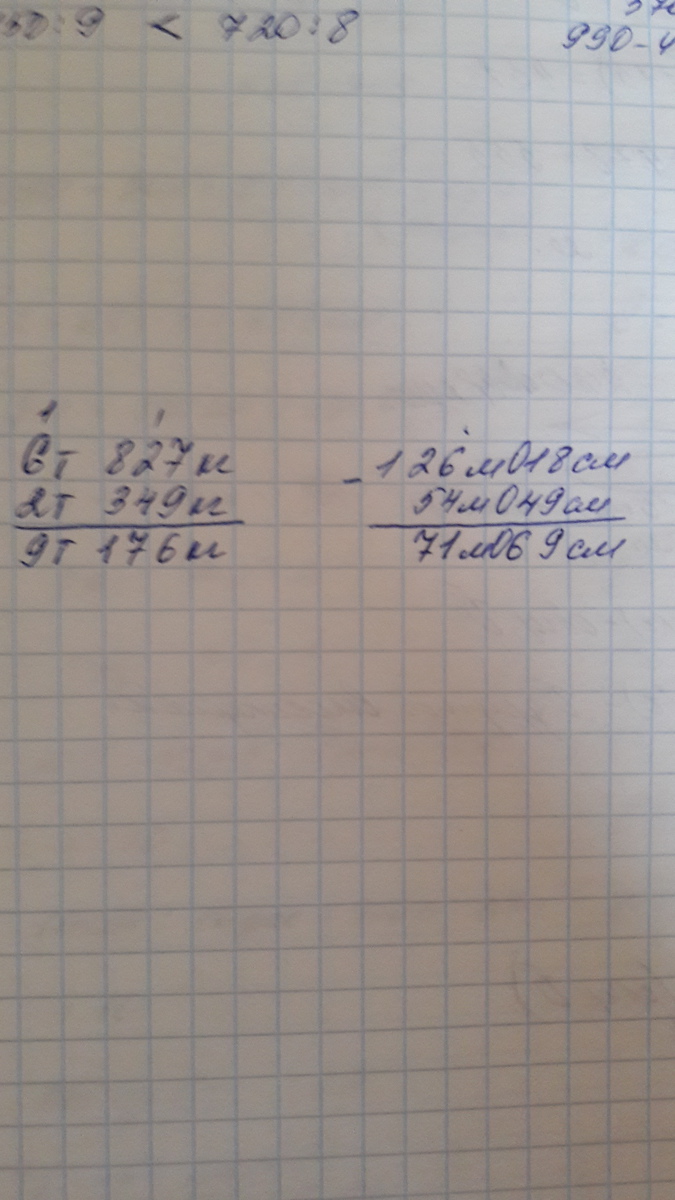 50:9 < 720:8
990-4
1 1
6т 827кг
2т 349кг
9т 176кг
- 126м018см
54м049см
71м069см